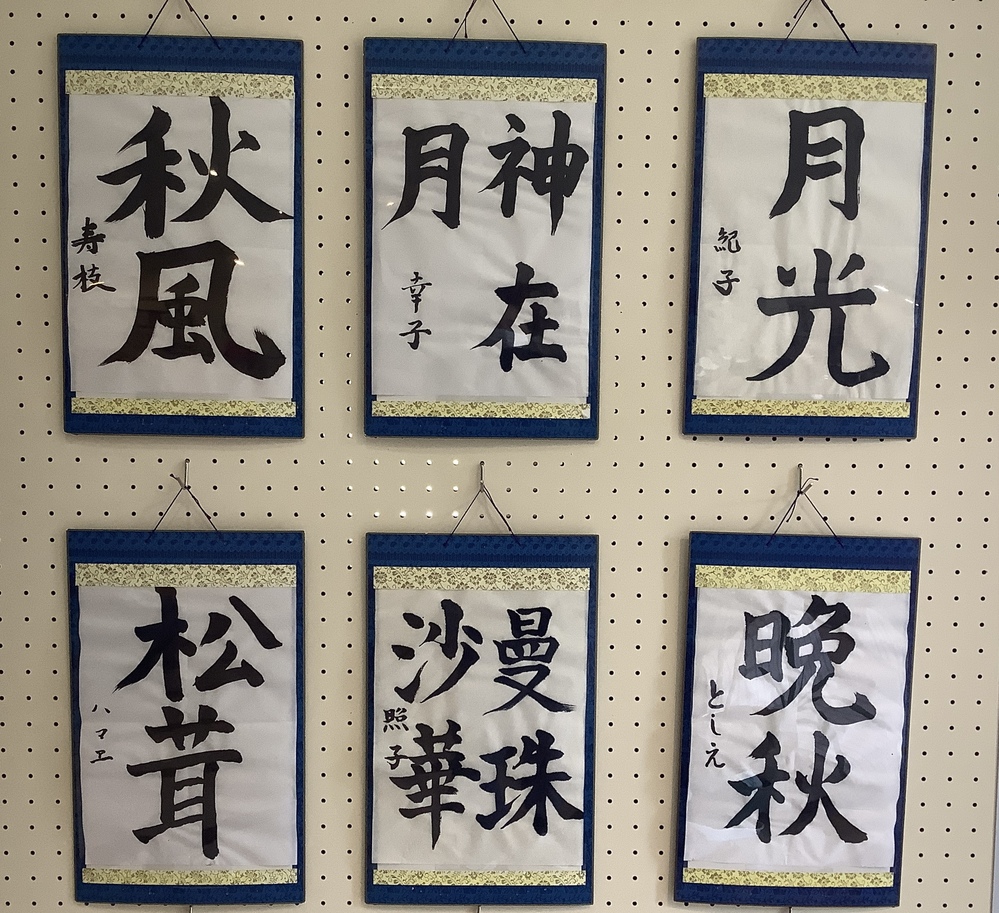 秋風
寿枝
神在
月
幸子
月光
紀子
松茸
ハマヱ
曼珠
沙華
照子
晩秋
としえ